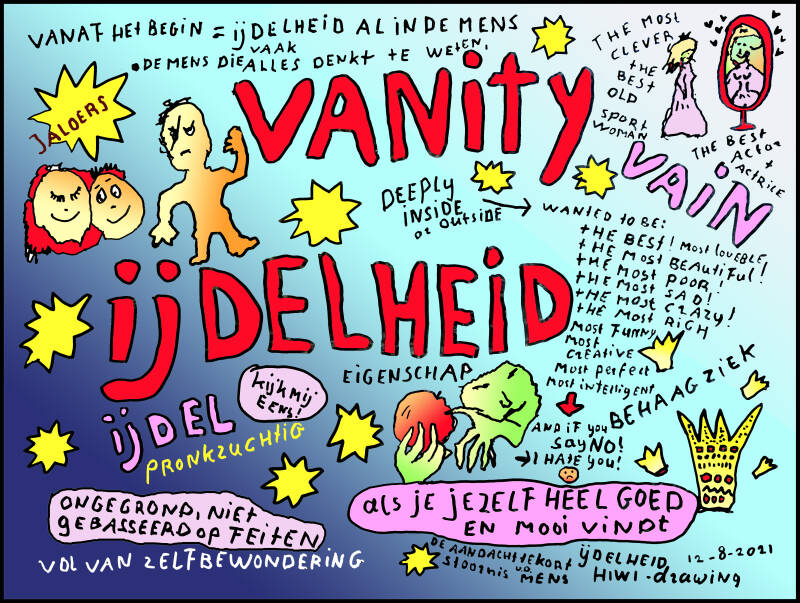 VANAF HET BEGIN = IJDELHEID AL IN DE MENS
VAAK
• DE MENS DIE ALLES DENKT TE WETEN.
JALOERS
VANITY
THE MOST
CLEVER
THE
BEST
OLD
SPORT
WOMAN
THE BEST
ACTOR
+
ACTRICE
VAIN
DEEPLY
INSIDE
OR OUTSIDE
WANTED TO BE:
THE BEST! MOST LOVEBLE,
THE MOST BEAUTIFUL!
THE MOST POOR!
THE MOST SAD!
THE MOST CRAZY!
THE MOST RICH
MOST FUNNY
MOST
CREATIVE
MOST PERFECT
MOST INTELLIGENT
IJDELHEID
EIGENSCHAP
BEHAAGZIEK
AND IF YOU
SAY NO!
I HATE YOU!
IJDEL
KIJK MIJ
EENS!
PRONKZUCHTIG
ONGEGROND, NIET
GEBASSEERD OP FEITEN
VOL VAN ZELFBEWONDERING
ALS JE JEZELF HEEL GOED
EN MOOI VINDT
DE AANDACHTTEKORT
STOORNIS v.d.
MENS
IJDELHEID
HIWI-drawing
12-8-2021